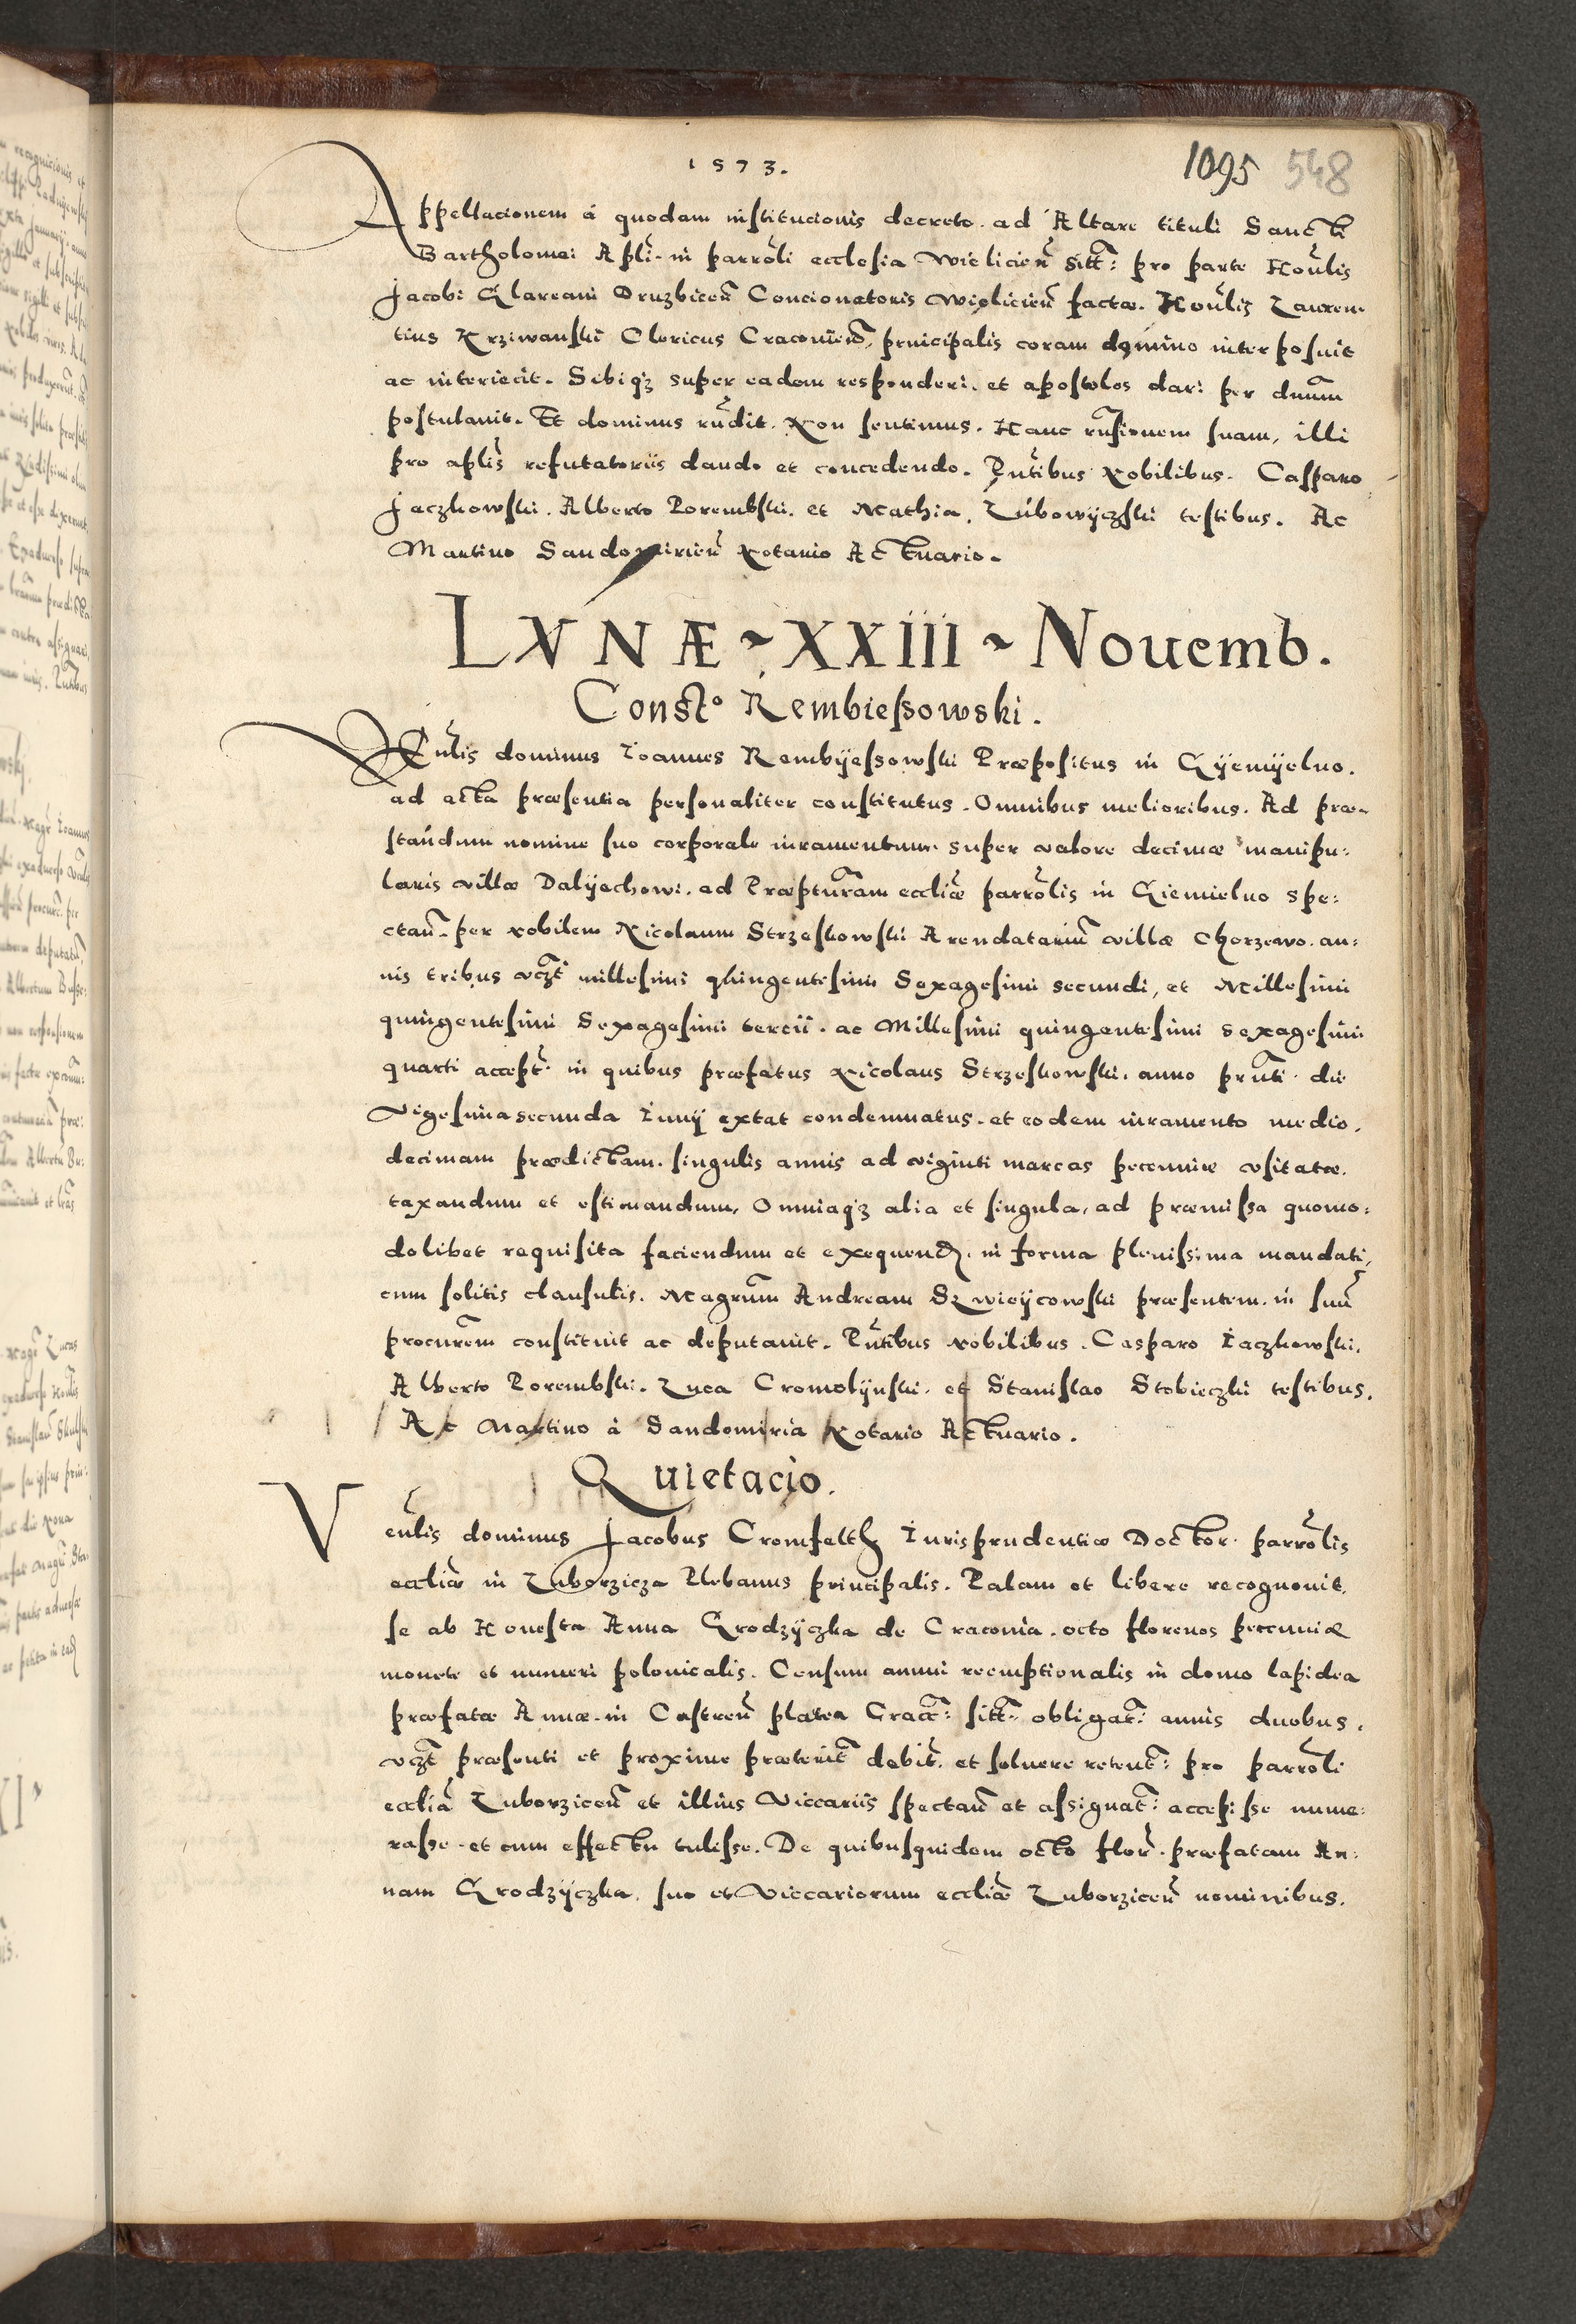 1573.
1095 548
Appellacionem á quodam institucionis decreto. ad Altare tituli Sancti
Bartholomei Apli. in parroli ecclesia Wielicień sitt: pro parte Honlis
Jacobi Glareani Druzbiceń Concionatoris Wielicień factæ. Honlis Lauren-
tius Krziwanski Clericus Cracovień, principalis coram domino interposuit
ac interiecit. Sibiqz super eadem responderi. et apostolos dari per dnum
postulauit. Et dominus rndit. Non sentimus. Hanc rnsionem suam, illi
pro aplis refutatoriis dando et concedendo. Pntibus Nobilibus. Casparo
Jaczkowski. Alberto Porembski. et Mathia. Lubowyczski testibus. Ac
Martino Sandomirień Notario Actuario.
LVNÆ ~ XXIII ~ Nouemb.
Consto Rembiessowski.
Venlis dominus Ioannes Rembyessowski Præpositus in Gyemyelno.
ad acta præsentia personaliter constitutus. Omnibus melioribus. Ad præ-
standum nomine suo corporale iuramentum super valore decimæ manipu:
laris villæ Dalyechowi. ad Præpturam eccliæ parrolis in Giemielno spe:
ctań. per Nobilem Nicolaum Strzeskowski Arendatarium villæ Chorzewo. an:
nis tribus vczt millesimi quingentesimi Sexagesimi secundi, et Millesimi
quingentesimi Sexagesimi tercii. ac Millesimi quingentesimi sexagesimi
quarti accept. in quibus præfatus Nicolaus Strzeskowski. anno prnti. die
Vigesima secunda Iunij extat condemnatus. et eodem iuramento medio.
decimam prædictam. singulis annis ad viginti marcas pecuniæ vsitatæ.
taxandum et estimandum, Omniaqz alia et singula, ad præmissa quomo:
dolibet requisita faciendum et exequend. in forma plenissima mandati,
cum solitis clausulis. Magrum Andream Szwieycowski præsentem. in suu
procurem constituit ac deputauit. Pntibus Nobilibus. Casparo Iaczkowski.
Alberto Porembski. Luca Cromolynski. et Stanislao Stobieczki testibus.
Ac Martino à Sandomiria Notario Actuario.
Quietacio.
Venlis dominus Jacobus Cromfelth Iurisprudentiæ Doctor. parrolis
eccliæ in Luborzicza Plebanus principalis. Palam et libere recognouit.
se ab Honesta Anna Grodzyczka de Cracouia. octo florenos peccuniæ
monete et numeri polonicalis. Censum annui reemptionalis in domo lapidea
præfatæ Annæ. in Castreń platea Crace: sitt: obligat: annis duobus.
vczt præsenti et proxime præterit debit. et soluere retent: pro parroli
ecclia Luborziceń et illius Viccariis spectań et assignat: accepisse nume:
rasse. et cum effectu tulisse. De quibusquidem octo flor. præfatam An:
nam Grodzyczka. suo et Viccariorum eccliæ Luborziceń nominibus.